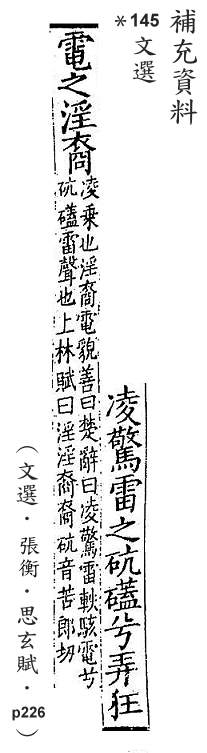 補充資料
＊145 文選
凌驚雷之砊礚兮弄狂
電之淫裔
凌乘也淫裔電貌善曰楚辭曰凌驚雷軼駭電兮
砊礚雷聲也上林賦曰淫淫裔裔砊音苦郎切
（文選・張衡・思玄賦・p226）